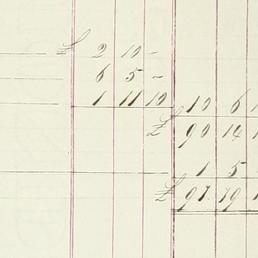 £ 2 10 -
6 5 -
1 11 10
10 6 1
£ 90 14 1
1 5
£ 97 19 1